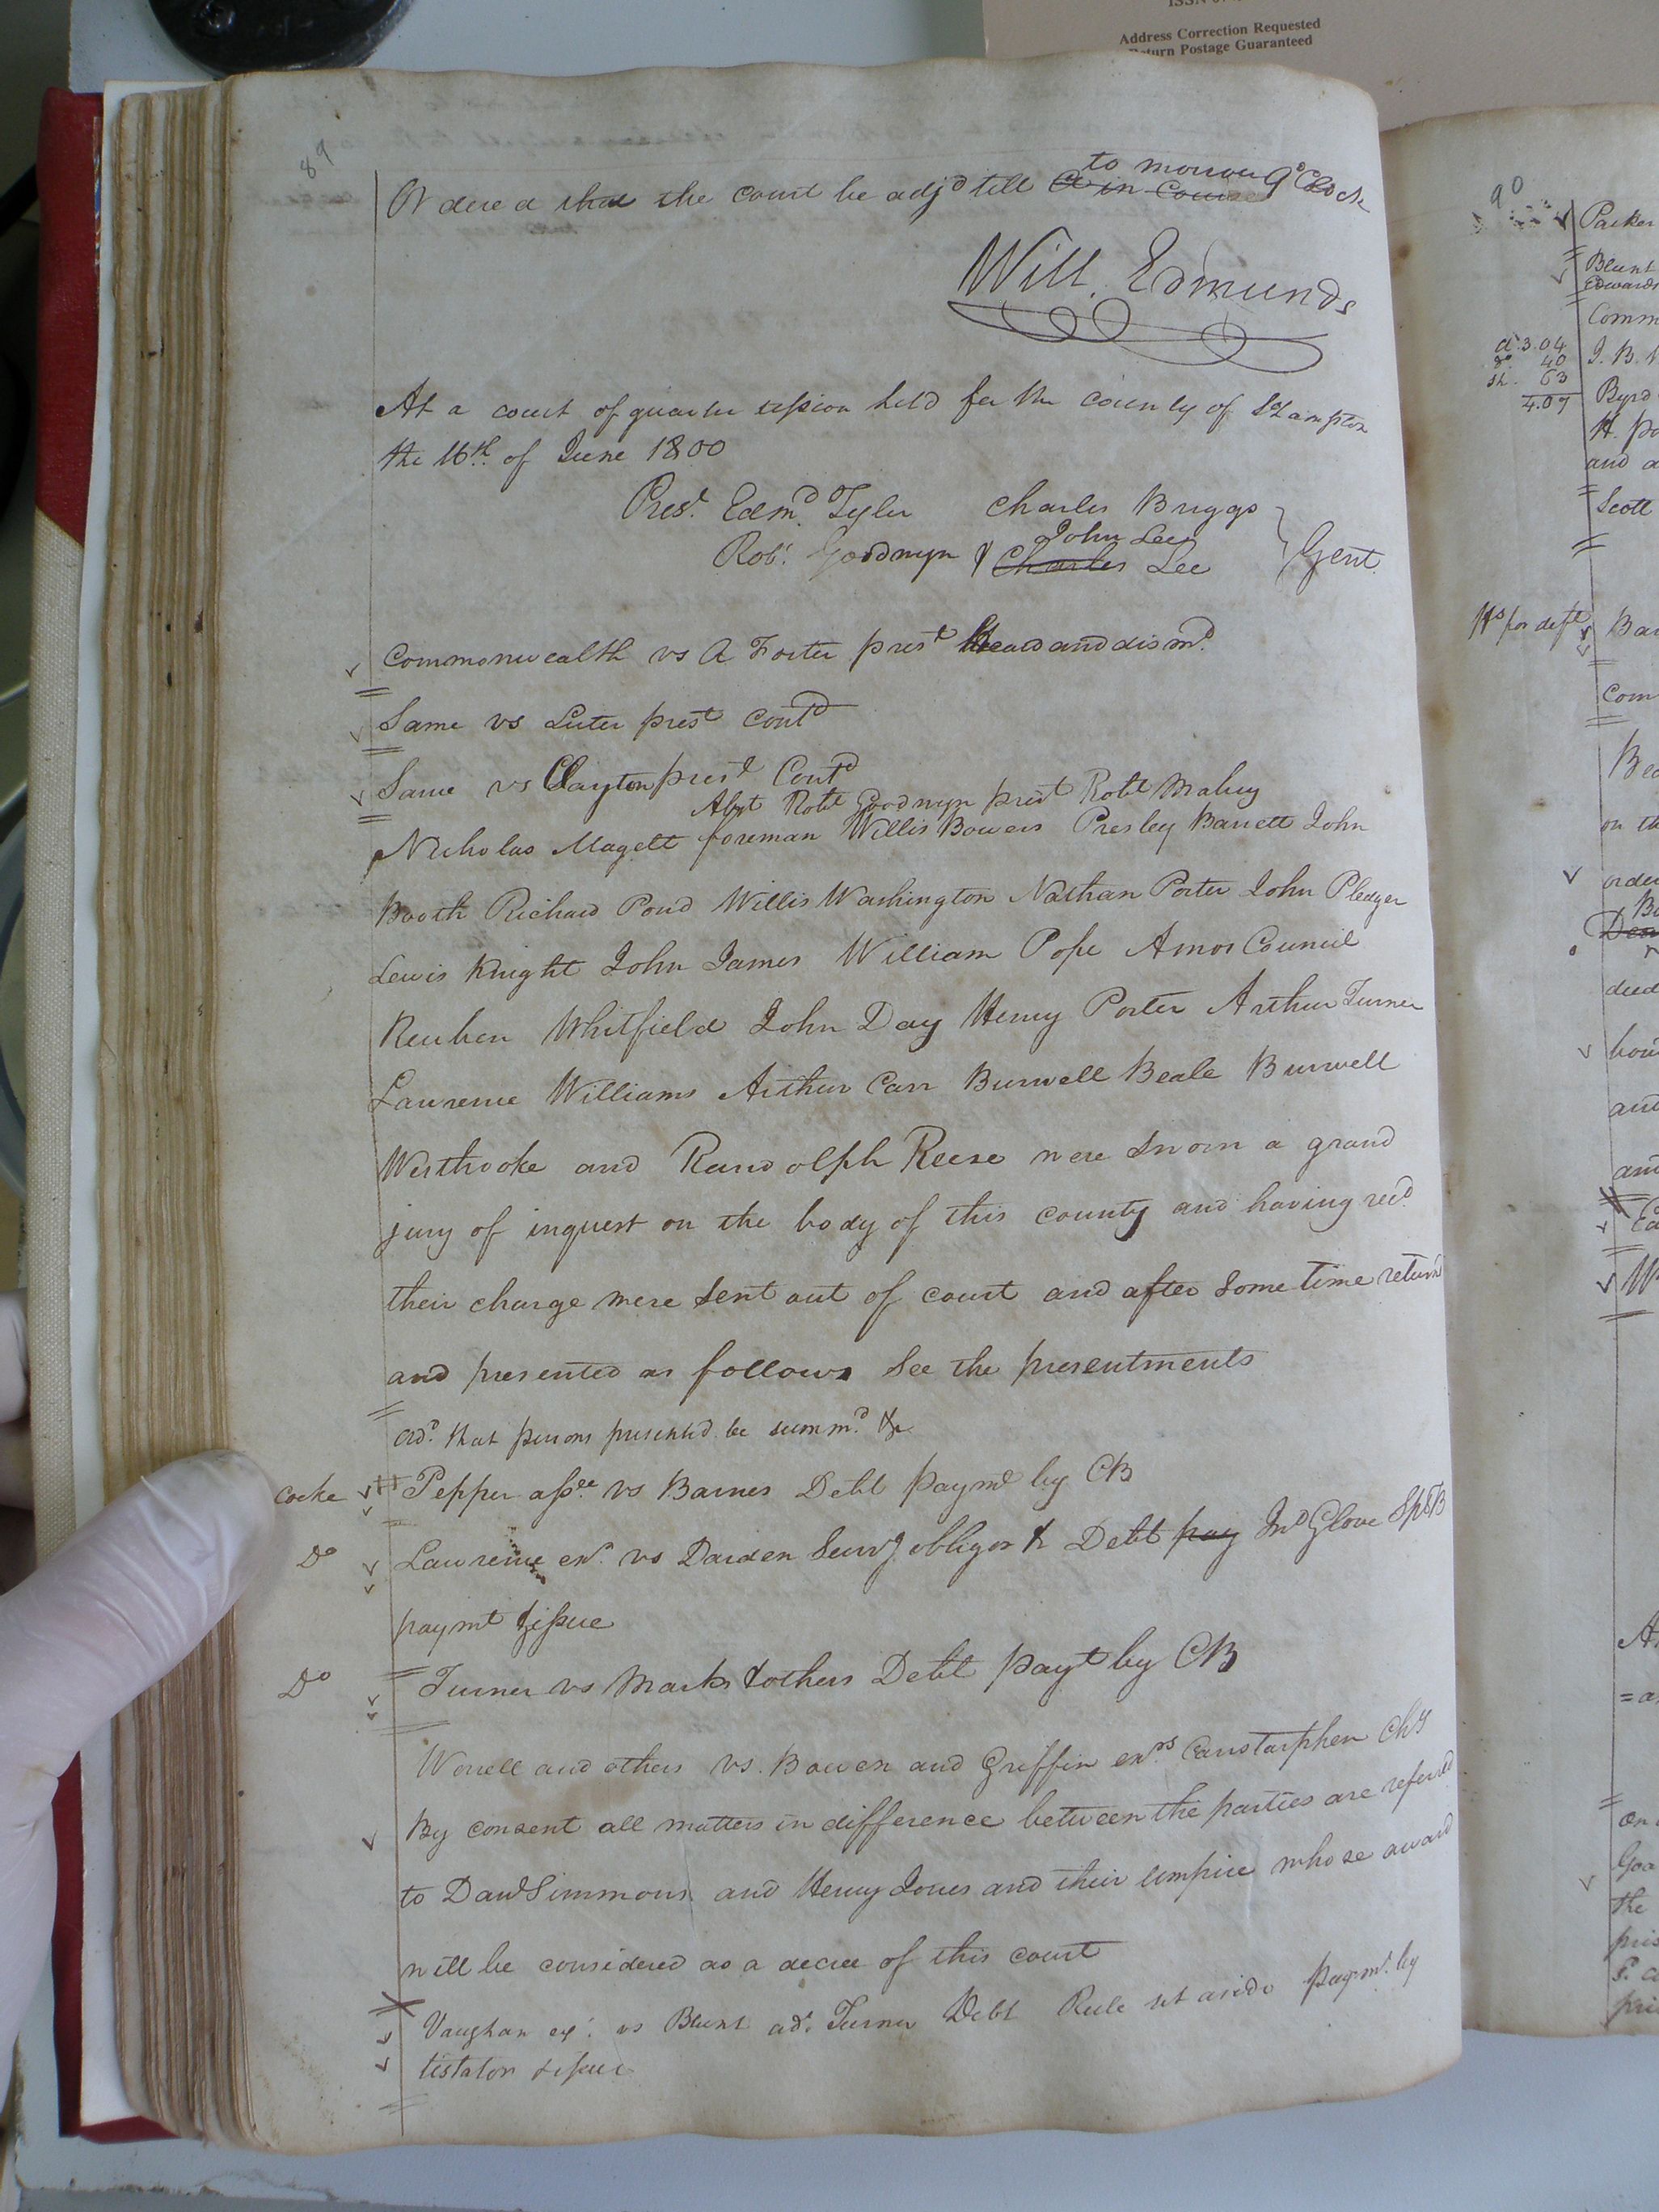 Address Correction Requested
Return Postage Guaranteed
89
to morrow 9 oClock
Ordered that the court be adjd till C in Course
Will. Edmunds
At a court of quarter session held for the county of S:hampton
the 16th of June 1800
Prest. Edmd. Tyler Charles Briggs
John Lee
Robt. Goodwyn & Charles Lee Gent.
Commonwealth vs A Foster prest Heard and dismd.
Same vs Luter prest Contd
Same vs Clayton prest Contd
Abst Robt Goodwyn prest Robt Mabry
Nicholas Magett foreman Willis Bowers Presley Barrett John
Booth Richard Pond Willis Washington Nathan Porter John Pledger
Lewis Knight John James William Pope Amos Council
Reuben Whitfield John Day Henry Porter Arthur Turner
Lawrence Williams Arthur Carr Burwell Beale Burwell
Westbrooke and Randolph Reese were sworn a grand
jury of inquest on the body of this county and having recd.
their charge were sent out of court and after some time returnd
and presented as follows See the presentments
ord. that persons presented be summd. &c
Cocke Pepper assee. vs Barnes Debt paymt by CB
Do Lawrence exr. vs Darden Surv.g obligor & Debt pay Jno Glove SpB
paymt & issue
Do Turner vs Marks & others Debt payt by CB
Worrell and others vs. Bowen and Griffin exrs Carstarphen Chy
By consent all matters in difference between the parties are referred
to Danl Simmons and Henry Jones and their umpire whose award
will be considered as a decree of this court
Vaughan exr. vs Blunt adr. Turner Debt Rule set aside paymt. by
testator & issue
90
Parker
Blunt
Edwards
Comm
d. 3.04
do. 40
sh. 63
4.07
J. B.
Byrd
H. po
and a
Scott
Hd for deft
Bar
Com
on th
order
deed
and
the